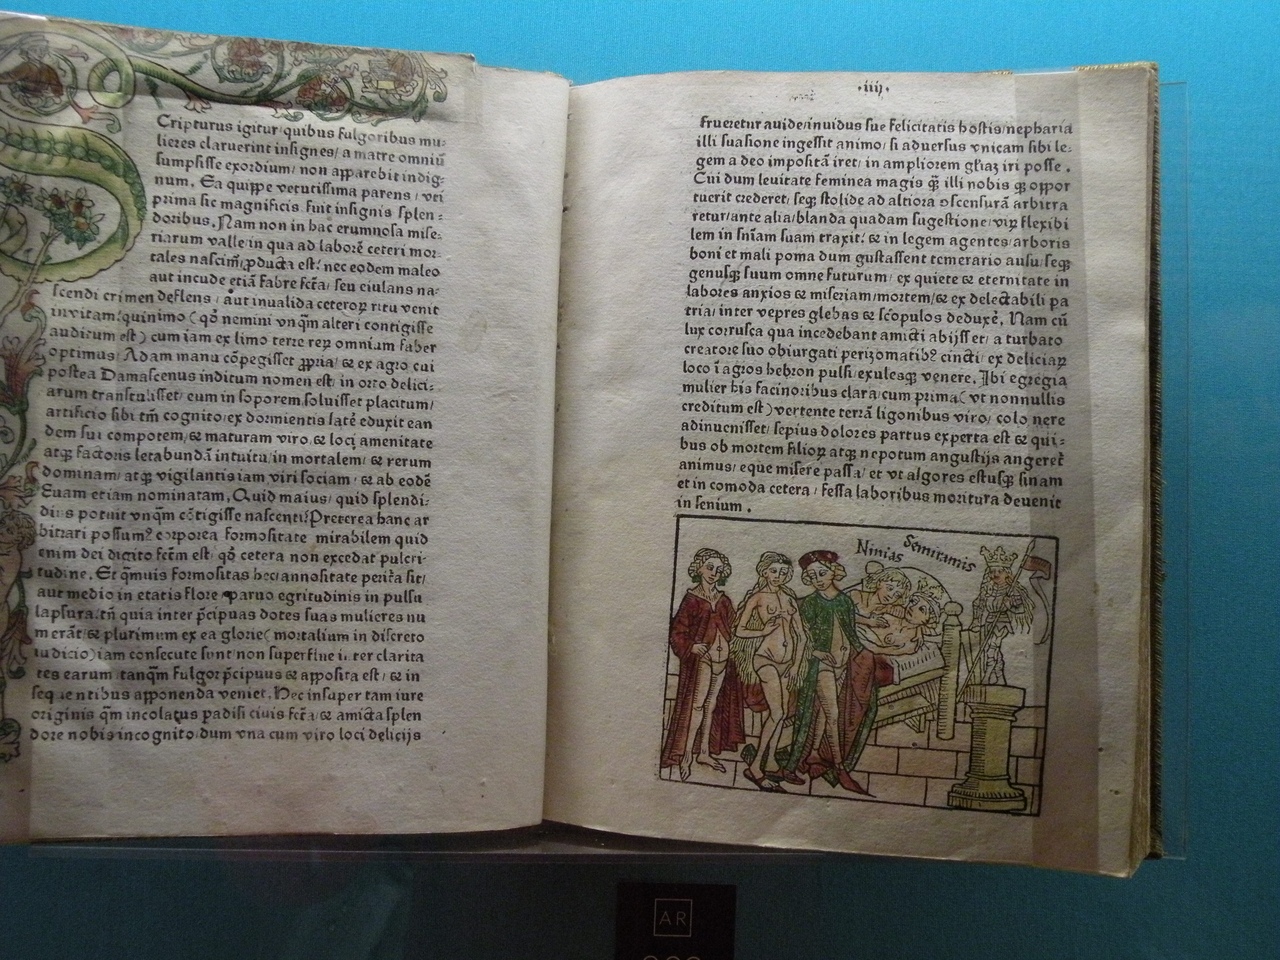 Cripturus igitur quibus fulgoribus mu-
lieres claruerint insignes/ a matre omniū
sumpsisse exordium/ non apparebit indig-
num. Ea quippe vetutissima parens/ vti
prima sic magnificis fuit insignis splen-
doribus. Nam non in hac erumnosa mise-
riarum valle/ in qua ad laborē ceteri mor-
tales nascim̄/ ꝓducta est: nec eodem maleo
aut incude etiā fabrefcta/ seu eiulans na-
scendi crimen deflens/ aut inualida ceteroꝝ ritu venit
in vitam: quinimo (qđ nemini vnq̄m alteri contigisse
auditum est) cum iam ex limo terre reꝝ omnium faber
optimus/ Adam manu cōpegisset ꝓpria/ & ex agro cui
postea Damascenus inditum nomen est/ in orto delici-
arum transtulisset/ eum in soporem soluisset placitum/
artificio sibi tm̄ cognito/ ex dormientis latē eduxit ean
dem sui compotem/ & maturam viro/ & loci amenitate
atqꝫ factoris letabundā intuitu/ in mortalem/ & rerum
dominam/ atqꝫ vigilantis iam viri sociam/ & ab eodē
Euam etiam nominatam. Quid maius/ quid splendi-
dius potuit vnq̄m cōtigisse nascenti? Preterea hanc ar
bitrari possumꝰ corporea formositate mirabilem quid
enim dei digito fctm̄ est/ qđ cetera non excedat pulcri-
tudine. Et q̄muis formositas hec annositate peritā sit/
aut medio in etatis flore paruo egritudinis in pulsu
lapsura: tn̄ quia inter p̄cipuas dotes suas mulieres nu
merāt/ & plurimum ex ea glorie (mortalium in discreto
iudicio) iam consecute sunt/ non superflue inter clarita
tes earum tanq̄m fulgor p̄cipuus & apposita est/ & in
sequentibus apponenda veniet. Hec insuper tam iure
originis q̄m incolatus padisi ciuis fctā/ & amicta splen
dore nobis incognito/ dum vna cum viro loci delicijs
·iiij·
frueretur auide/ inuidus sue felicitatis hostis/ nepharia
illi suasione ingessit animo/ si aduersus vnicam sibi le-
gem a deo impositā iret/ in ampliorem gl̄iaꝫ iri posse.
Cui dum leuitate feminea magis q̄ꝫ illi nobis qꝫ oppor
tuerit crederet/ seqꝫ stolide ad altiora ↄscensurā arbitra
retur/ ante alia/ blanda quadam sugestione/ viꝝ flexibi
lem in sn̄iam suam traxit: & in legem agentes/ arboris
boni et mali poma dum gustassent temerario ausu/ seqꝫ
genusqꝫ suum omne futurum/ ex quiete & eternitate in
labores anxios & miseriam/ mortem/ & ex delectabili pa
tria/ inter vepres glebas & scopulos deduxē. Nam cū
lux corrusca qua incedebant amicti abijsset/ a turbato
creatore suo obiurgati perizomatibꝰ cincti/ ex deliciaꝝ
loco ī agros hebron pulsi/ exulesqꝫ venere. Ibi egregia
mulier his facinoribus clara/ cum prima (vt nonnullis
creditum est) vertente terrā ligonibus viro/ colo nere
adinuenisset/ sepius dolores partus experta est & qui-
bus ob mortem filioꝝ atqꝫ nepotum angustijs angeret̄
animus/ eque misere passa/ et vt algores estusqꝫ sinam
et in comoda cetera/ fessa laboribus moritura deuenit
in senium.
Ninias Semiramis
AR